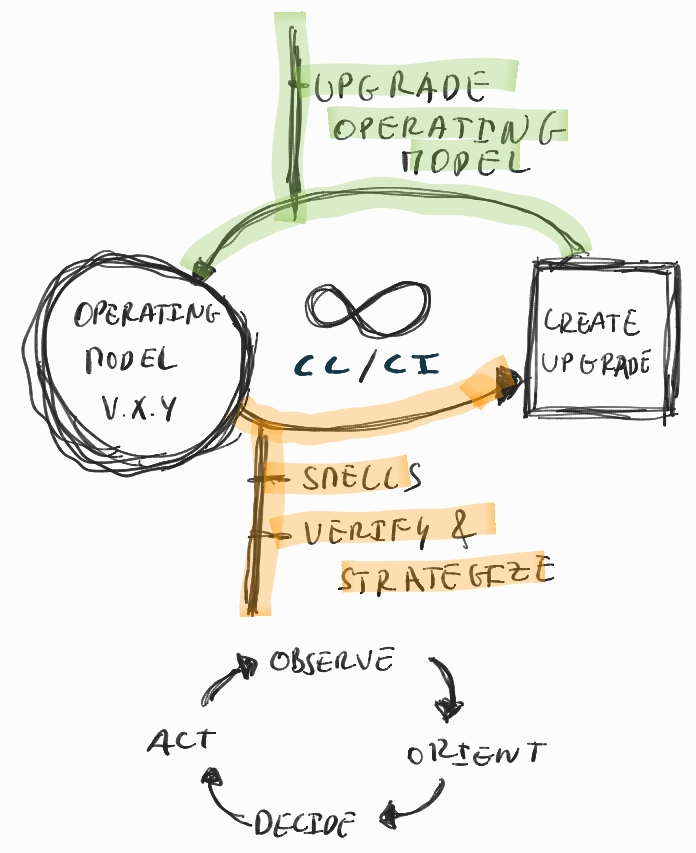 UPGRADE
OPERATING
MODEL
OPERATING
MODEL
V.X.Y
CL/CI
CREATE
UPGRADE
SMELLS
VERIFY &
STRATEGIZE
OBSERVE
ORIENT
DECIDE
ACT